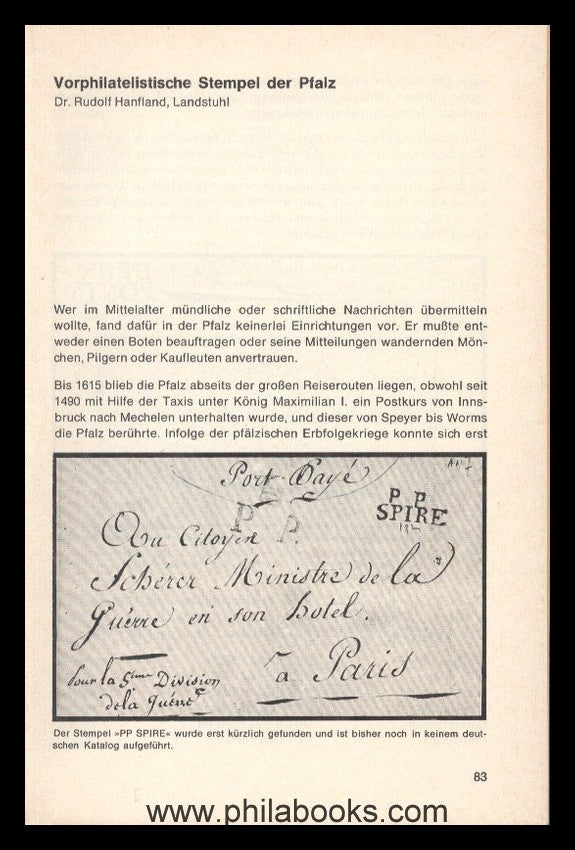 Vorphilatelistische Stempel der Pfalz
Dr. Rudolf Hanfland, Landstuhl
Wer im Mittelalter mündliche oder schriftliche Nachrichten übermitteln
wollte, fand dafür in der Pfalz keinerlei Einrichtungen vor. Er mußte ent-
weder einen Boten beauftragen oder seine Mitteilungen wandernden Mön-
chen, Pilgern oder Kaufleuten anvertrauen.
Bis 1615 blieb die Pfalz abseits der großen Reiserouten liegen, obwohl seit
1490 mit Hilfe der Taxis unter König Maximilian I. ein Postkurs von Inns-
bruck nach Mechelen unterhalten wurde, und dieser von Speyer bis Worms
die Pfalz berührte. Infolge der pfälzischen Erbfolgekriege konnte sich erst
Port Payé
P P
SPIRE
P P
Au Citoyen
Schérer Ministre de la
Guerre en son hotel.
à Paris
Pour la 5me Division
de la Guerre
Der Stempel »PP SPIRE« wurde erst kürzlich gefunden und ist bisher noch in keinem deut-
schen Katalog aufgeführt.
83
www.philabooks.com